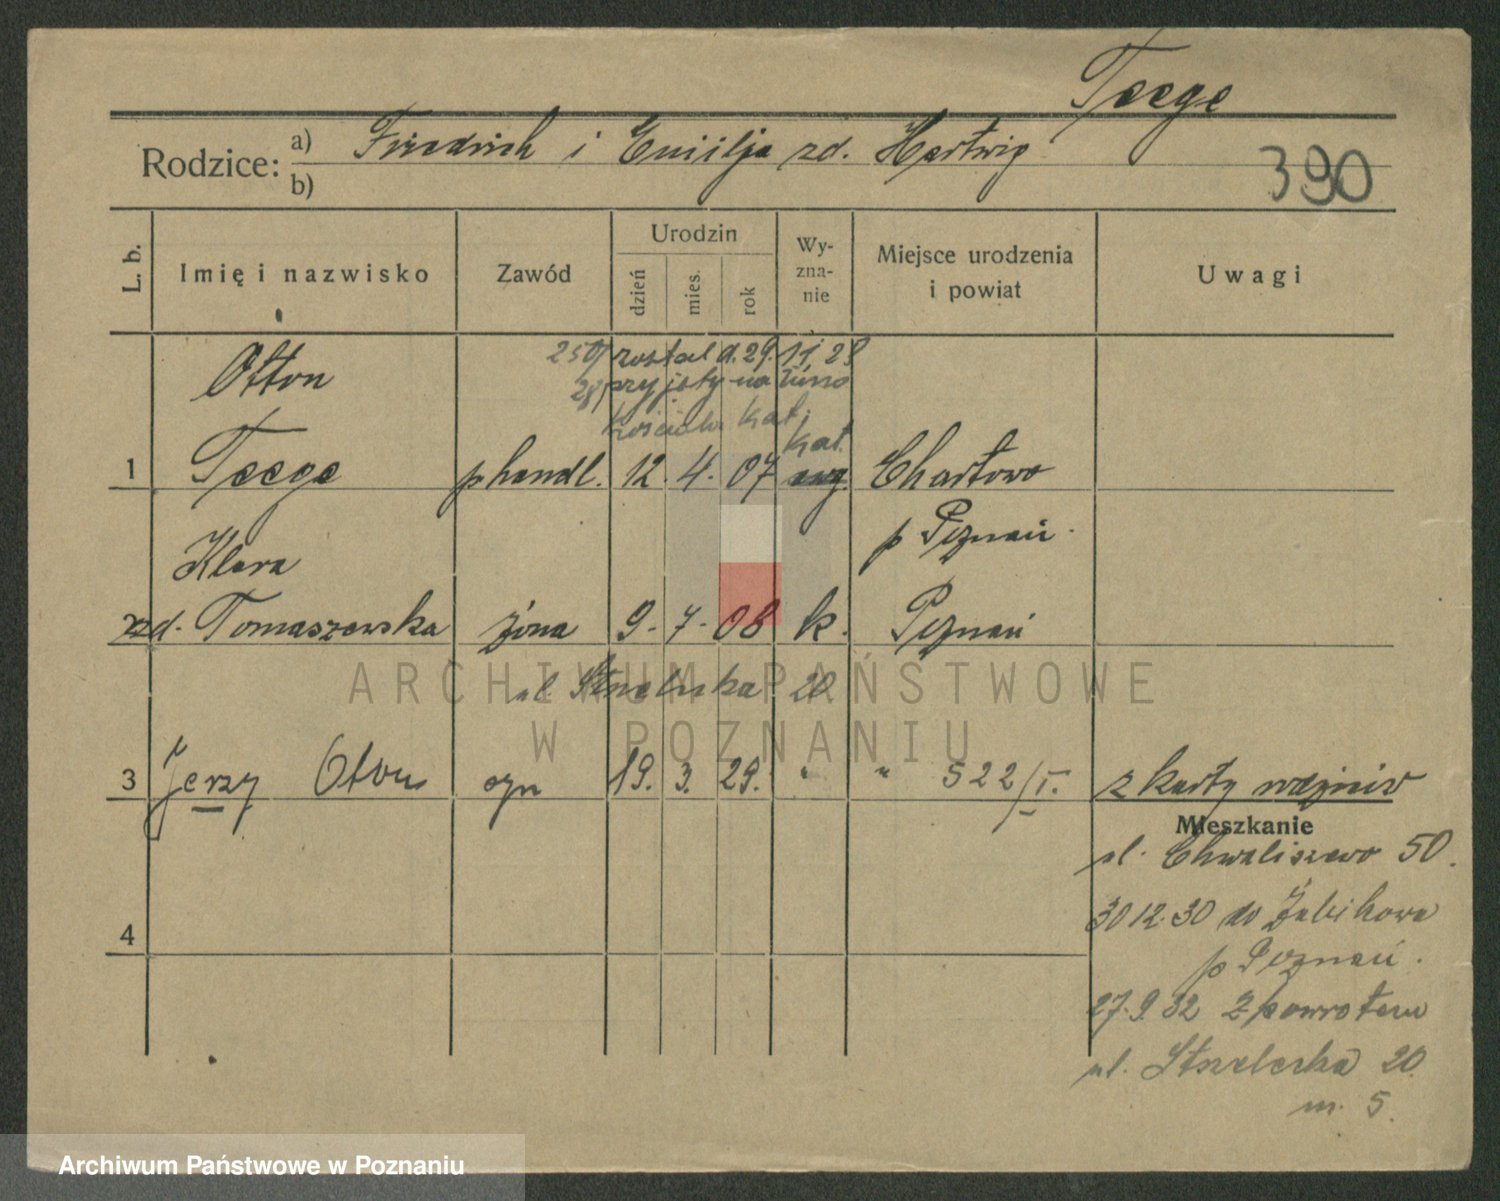 Teege
Rodzice: a) Friedrich i Emilja zd. Hartwig
b)
390
L. b. Imię i nazwisko Zawód Urodzin dzień mies. rok Wy-zna-nie Miejsce urodzenia i powiat Uwagi
Otton
250/ został d. 29. 11 28
28 przyjęty na łono
Kościoła Kat.
kat.
1 Teege p handl. 12. 4. 07 ewg. Chartowo
p Poznań.
Klara
2 zd. Tomaszewska żona 9. 7. 08 k. Poznań
ul. Strzelecka 20
3 Jerzy Oton syn 19. 3. 29. " " 522/I. z karty
Mieszkanie
ul. Chwaliszewo 50.
30 12. 30 do Żabikowa
4
p Poznań.
27. 9. 32 z powrotem
ul. Strzelecka 20.
m. 5.
ARCHIWUM PAŃSTWOWE
W POZNANIU
Archiwum Państwowe w Poznaniu